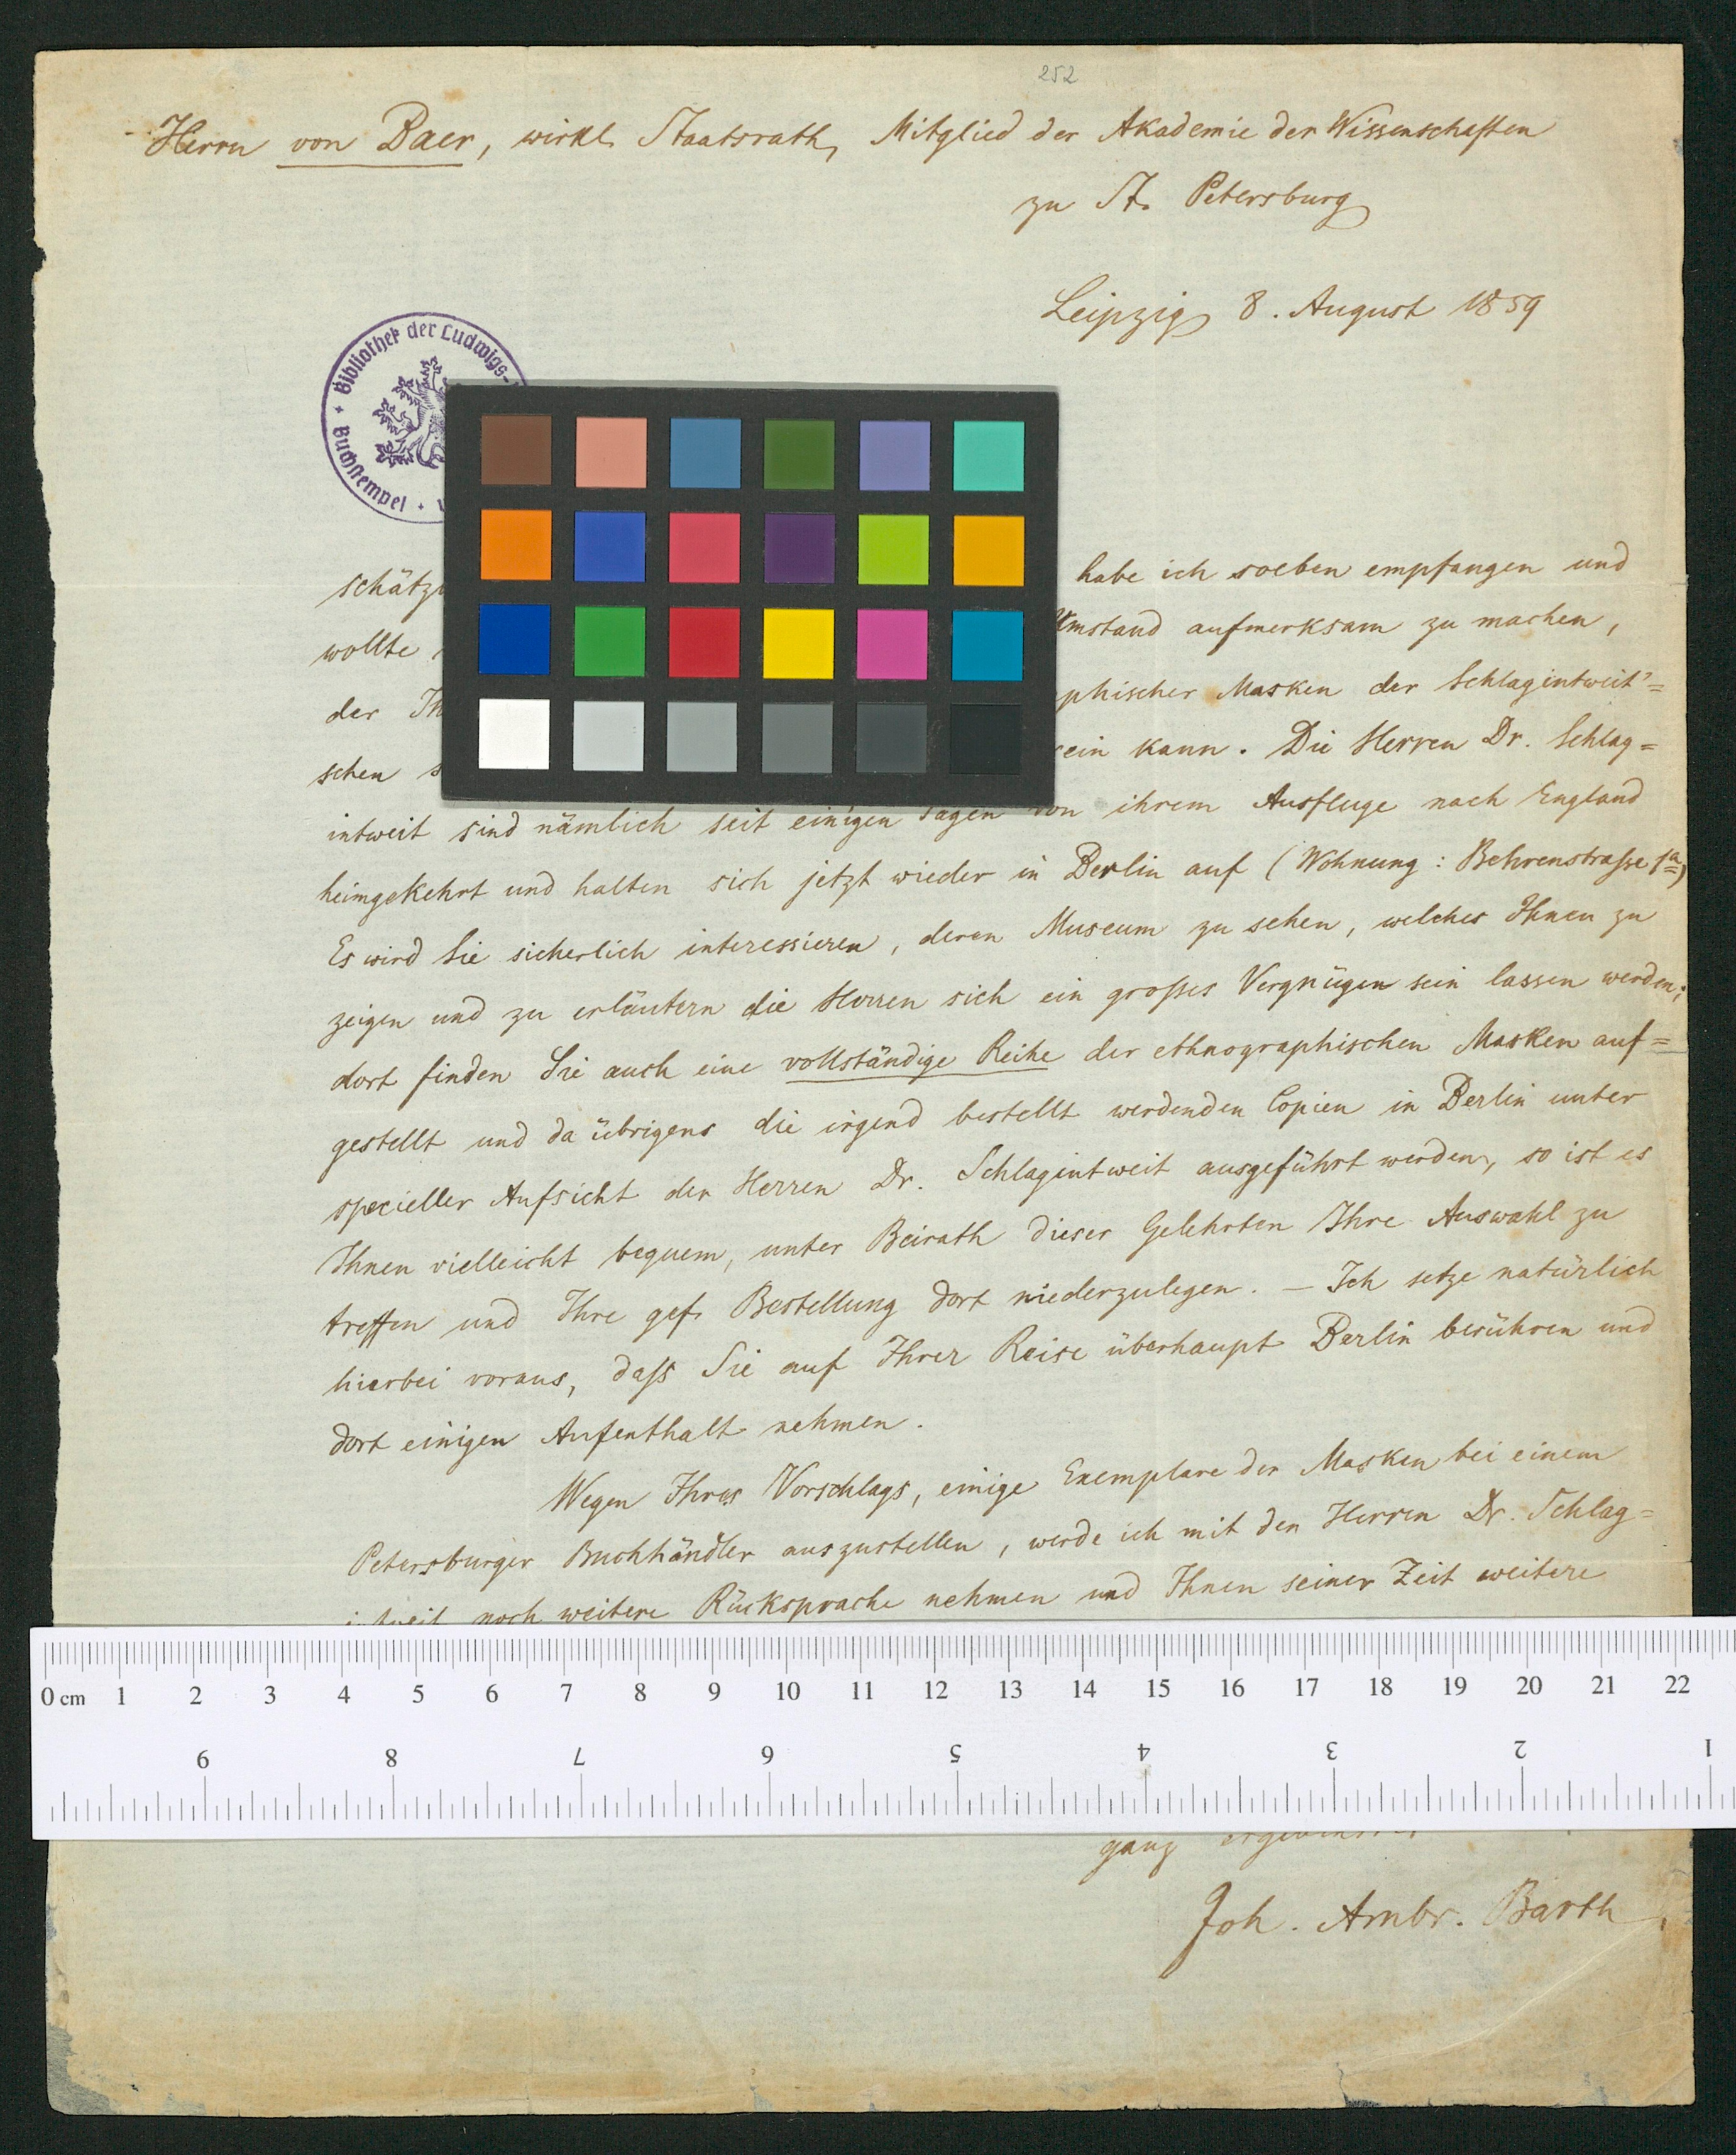 252
Herrn von Baer, wirkl. Staatsrath, Mitglied der Akademie der Wissenschaften
zu St. Petersburg
Leipzig 8. August 1859
Bibliothek der Ludwigs-
Buchstempel
habe ich soeben empfangen und
wollte Umstand aufmerksam zu machen,
der Masken der Schlagintweit'=
schen sein kann. Die Herren Dr. Schlag=
intweit sind nämlich seit einigen Tagen von ihrem Ausfluge nach England
heimgekehrt und halten sich jetzt wieder in Berlin auf (Wohnung: Behrenstraße 1a)
Es wird Sie sicherlich interessieren, deren Museum zu sehen, welches Ihnen zu
zeigen und zu erläutern die Herren sich ein großes Vergnügen sein lassen werden;
dort finden Sie auch eine vollständige Reihe der ethnographischen Masken auf=
gestellt und da übrigens die irgend bestellt werdenden Copien in Berlin unter
specieller Aufsicht der Herren Dr. Schlagintweit ausgeführt werden, so ist es
Ihnen vielleicht bequem, unter Beirath dieser Gelehrten Ihre Auswahl zu
treffen und Ihre gef. Bestellung dort niederzulegen. – Ich setze natürlich
hierbei voraus, daß Sie auf Ihrer Reise überhaupt Berlin berühren und
dort einigen Aufenthalt nehmen.
Wegen Ihres Vorschlags, einige Exemplare der Masken bei einem
Petersburger Buchhändler auszustellen, werde ich mit den Herren Dr. Schlag=
intweit noch weitere Rücksprache nehmen und Ihnen seiner Zeit weitere
0 cm 1 2 3 4 5 6 7 8 9 10 11 12 13 14 15 16 17 18 19 20 21 22
9 8 7 6 5 4 3 2 1
ganz ergebenster
Joh. Ambr. Barth